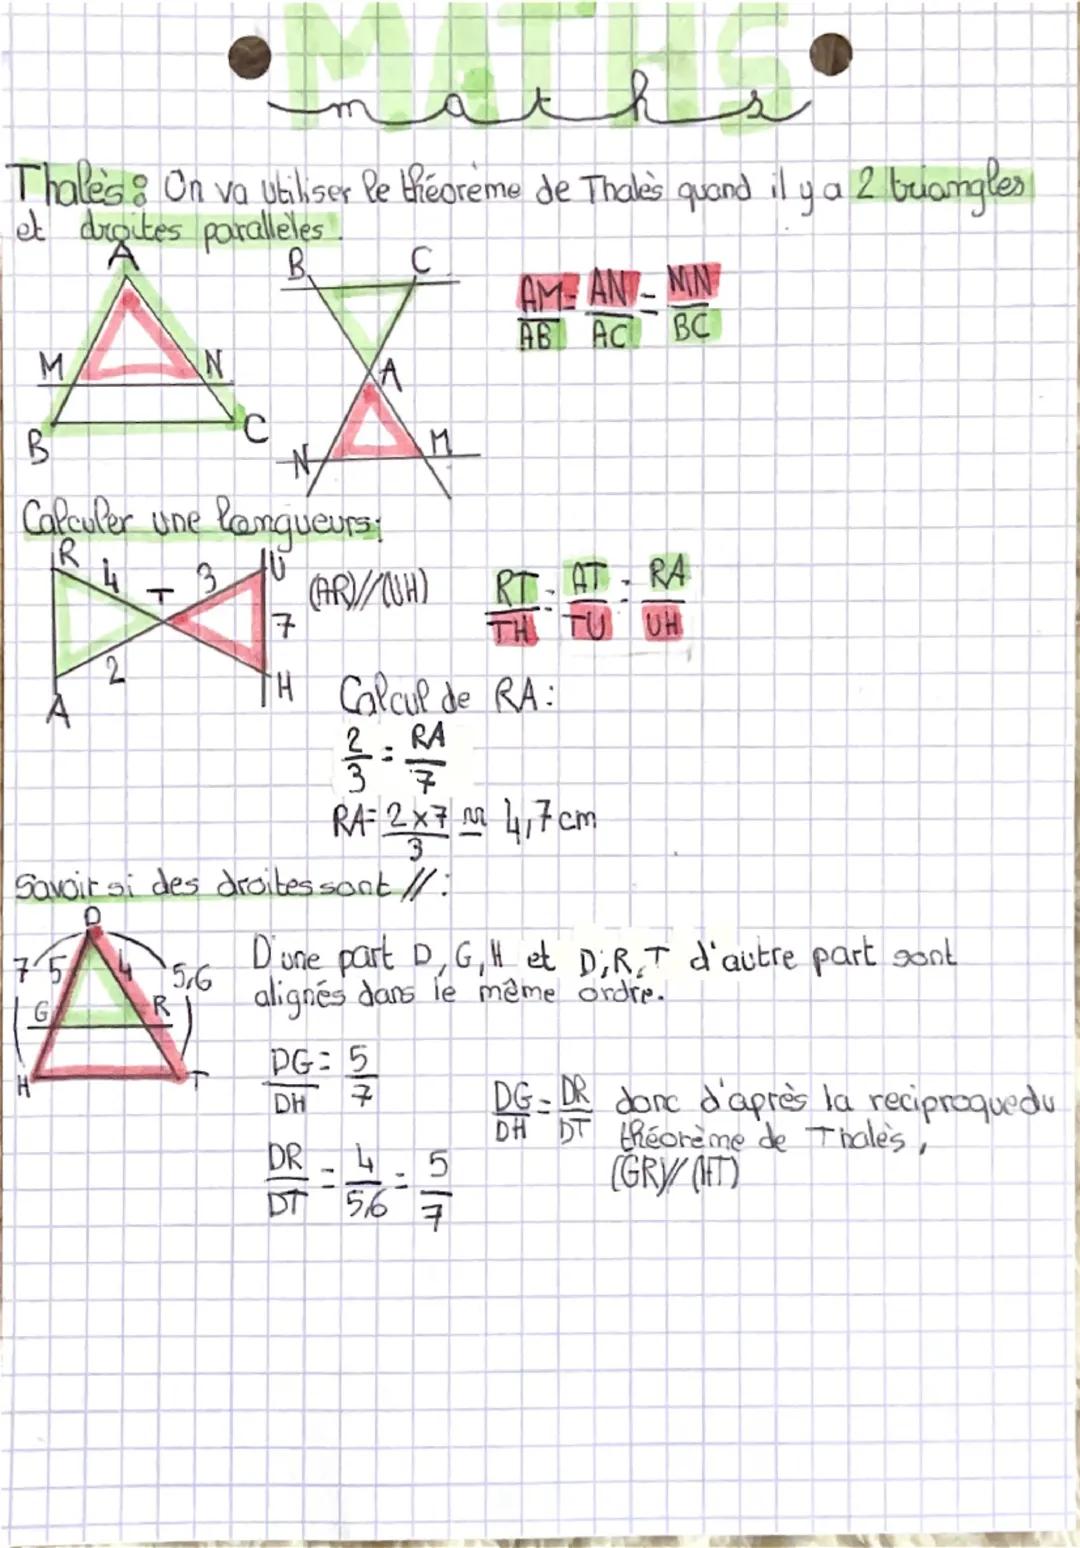 MATHS
maths
Thalès : On va utiliser le théorème de Thalès quand il y a 2 triangles
et droites parallèles.
A
M N
B C
B C
A
N M
AM = AN = MN
AB AC BC
Calculer une longueurs :
R 4 T 3 U
7
2
A H
(AR)//(UH)
RT = AT = RA
TH TU UH
Calcul de RA :
2 = RA
3 7
RA = 2 x 7 ≈ 4,7 cm
3
Savoir si des droites sont // :
D
7 5 4 5,6
G R
H T
D'une part D, G, H et D, R, T d'autre part sont
alignés dans le même ordre.
DG = 5
DH 7
DR = 4 = 5
DT 5,6 7
DG = DR donc d'après la reciproque du
DH DT théorème de Thalès,
(GR)//(HT)